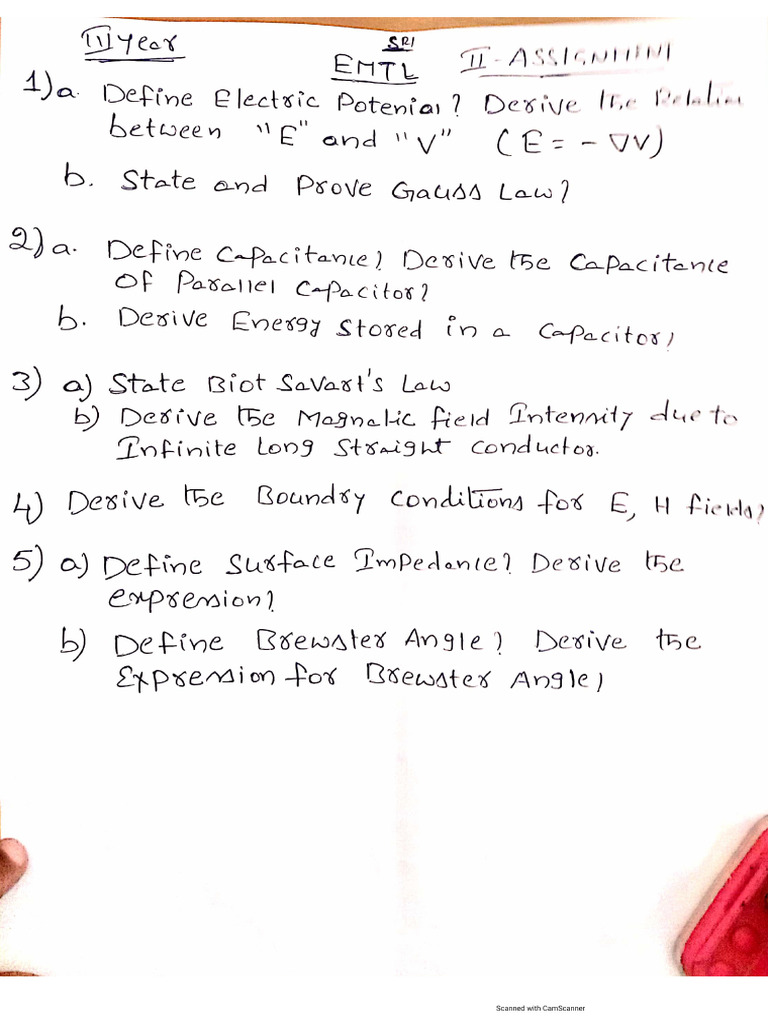 III Year
SRI
EMTL
II - ASSIGNMENT
1) a. Define Electric Potenial? Derive the Relation
between "E" and "V" (E = - ∇V)
b. State and Prove Gauss Law?
2) a. Define Capacitance? Derive the Capacitance
Of Parallel Capacitor?
b. Derive Energy Stored in a Capacitor?
3) a) State Biot Savart's Law
b) Derive the Magnetic field Intensity due to
Infinite Long Straight Conductor.
4) Derive the Boundry Conditions for E, H fields?
5) a) Define Surface Impedance? Derive the
expression?
b) Define Brewster Angle? Derive the
Expression for Brewster Angle?
Scanned with CamScanner